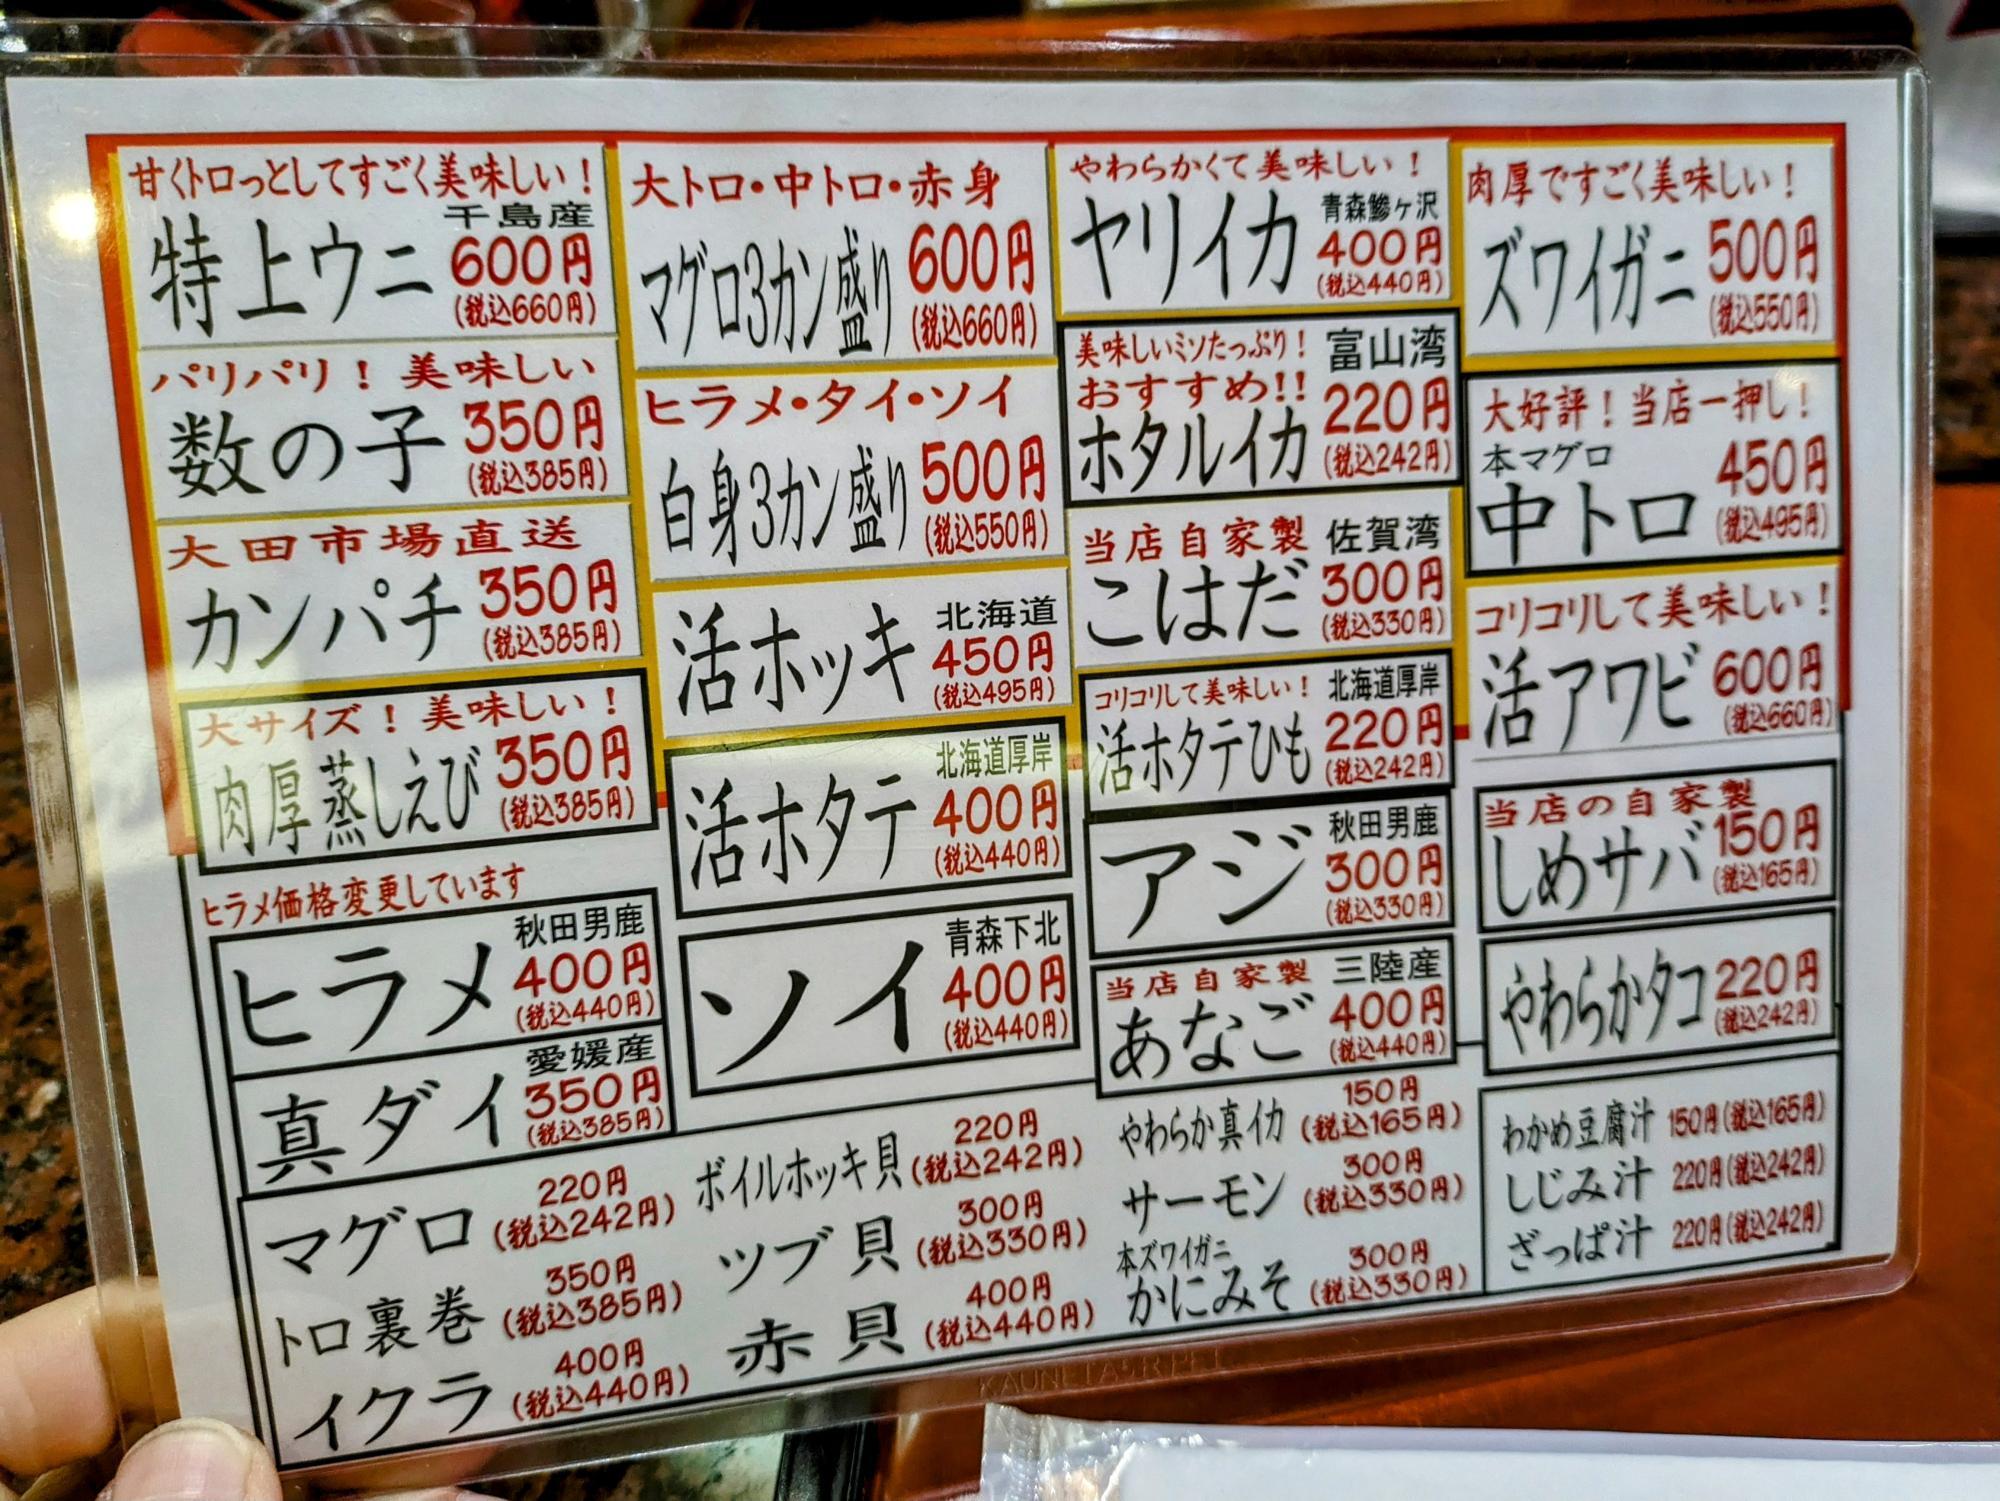 甘くトロっとしてすごく美味しい！
千島産
特上ウニ 600円
(税込660円)
パリパリ！美味しい
数の子 350円
(税込385円)
大田市場直送
カンパチ 350円
(税込385円)
大サイズ！美味しい！
肉厚蒸しえび 350円
(税込385円)
ヒラメ価格変更しています
秋田男鹿
ヒラメ 400円
(税込440円)
愛媛産
真ダイ 350円
(税込385円)
大トロ・中トロ・赤身
マグロ3カン盛り 600円
(税込660円)
ヒラメ・タイ・ソイ
白身3カン盛り 500円
(税込550円)
北海道
活ホッキ 450円
(税込495円)
北海道厚岸
活ホタテ 400円
(税込440円)
青森下北
ソイ 400円
(税込440円)
やわらかくて美味しい！
青森鰺ヶ沢
ヤリイカ 400円
(税込440円)
美味しいミソたっぷり！ 富山湾
おすすめ!! 220円
ホタルイカ (税込242円)
当店自家製 佐賀湾
こはだ 300円
(税込330円)
コリコリして美味しい！ 北海道厚岸
活ホタテひも 220円
(税込242円)
秋田男鹿
アジ 300円
(税込330円)
当店自家製 三陸産
あなご 400円
(税込440円)
肉厚ですごく美味しい！
ズワイガニ 500円
(税込550円)
大好評！当店一押し！
本マグロ
中トロ 450円
(税込495円)
コリコリして美味しい！
活アワビ 600円
(税込660円)
当店の自家製
しめサバ 150円
(税込165円)
やわらかタコ 220円
(税込242円)
マグロ 220円
(税込242円)
トロ裏巻 350円
(税込385円)
イクラ 400円
(税込440円)
ボイルホッキ貝 220円
(税込242円)
ツブ貝 300円
(税込330円)
赤貝 400円
(税込440円)
やわらか真イカ 150円
(税込165円)
サーモン 300円
(税込330円)
本ズワイガニ
かにみそ 300円
(税込330円)
わかめ豆腐汁 150円(税込165円)
しじみ汁 220円(税込242円)
ざっぱ汁 220円(税込242円)